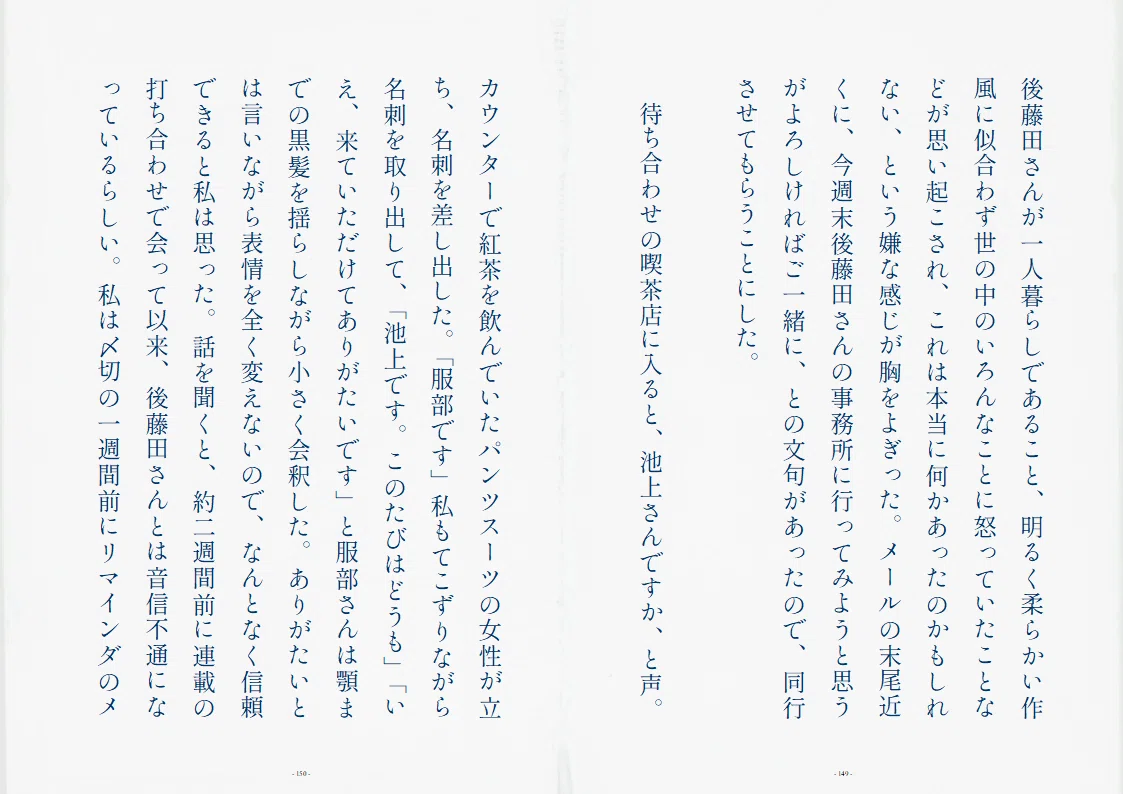 後藤田さんが一人暮らしであること、明るく柔らかい作
風に似合わず世の中のいろんなことに怒っていたことな
どが思い起こされ、これは本当に何かあったのかもしれ
ない、という嫌な感じが胸をよぎった。メールの末尾近
くに、今週末後藤田さんの事務所に行ってみようと思う
がよろしければご一緒に、との文句があったので、同行
させてもらうことにした。
待ち合わせの喫茶店に入ると、池上さんですか、と声。
- 149 -
カウンターで紅茶を飲んでいたパンツスーツの女性が立
ち、名刺を差し出した。「服部です」私もてこずりながら
名刺を取り出して、「池上です。このたびはどうも」「い
え、来ていただけてありがたいです」と服部さんは顎ま
での黒髪を揺らしながら小さく会釈した。ありがたいと
は言いながら表情を全く変えないので、なんとなく信頼
できると私は思った。話を聞くと、約二週間前に連載の
打ち合わせで会って以来、後藤田さんとは音信不通にな
っているらしい。私は〆切の一週間前にリマインダのメ
- 150 -